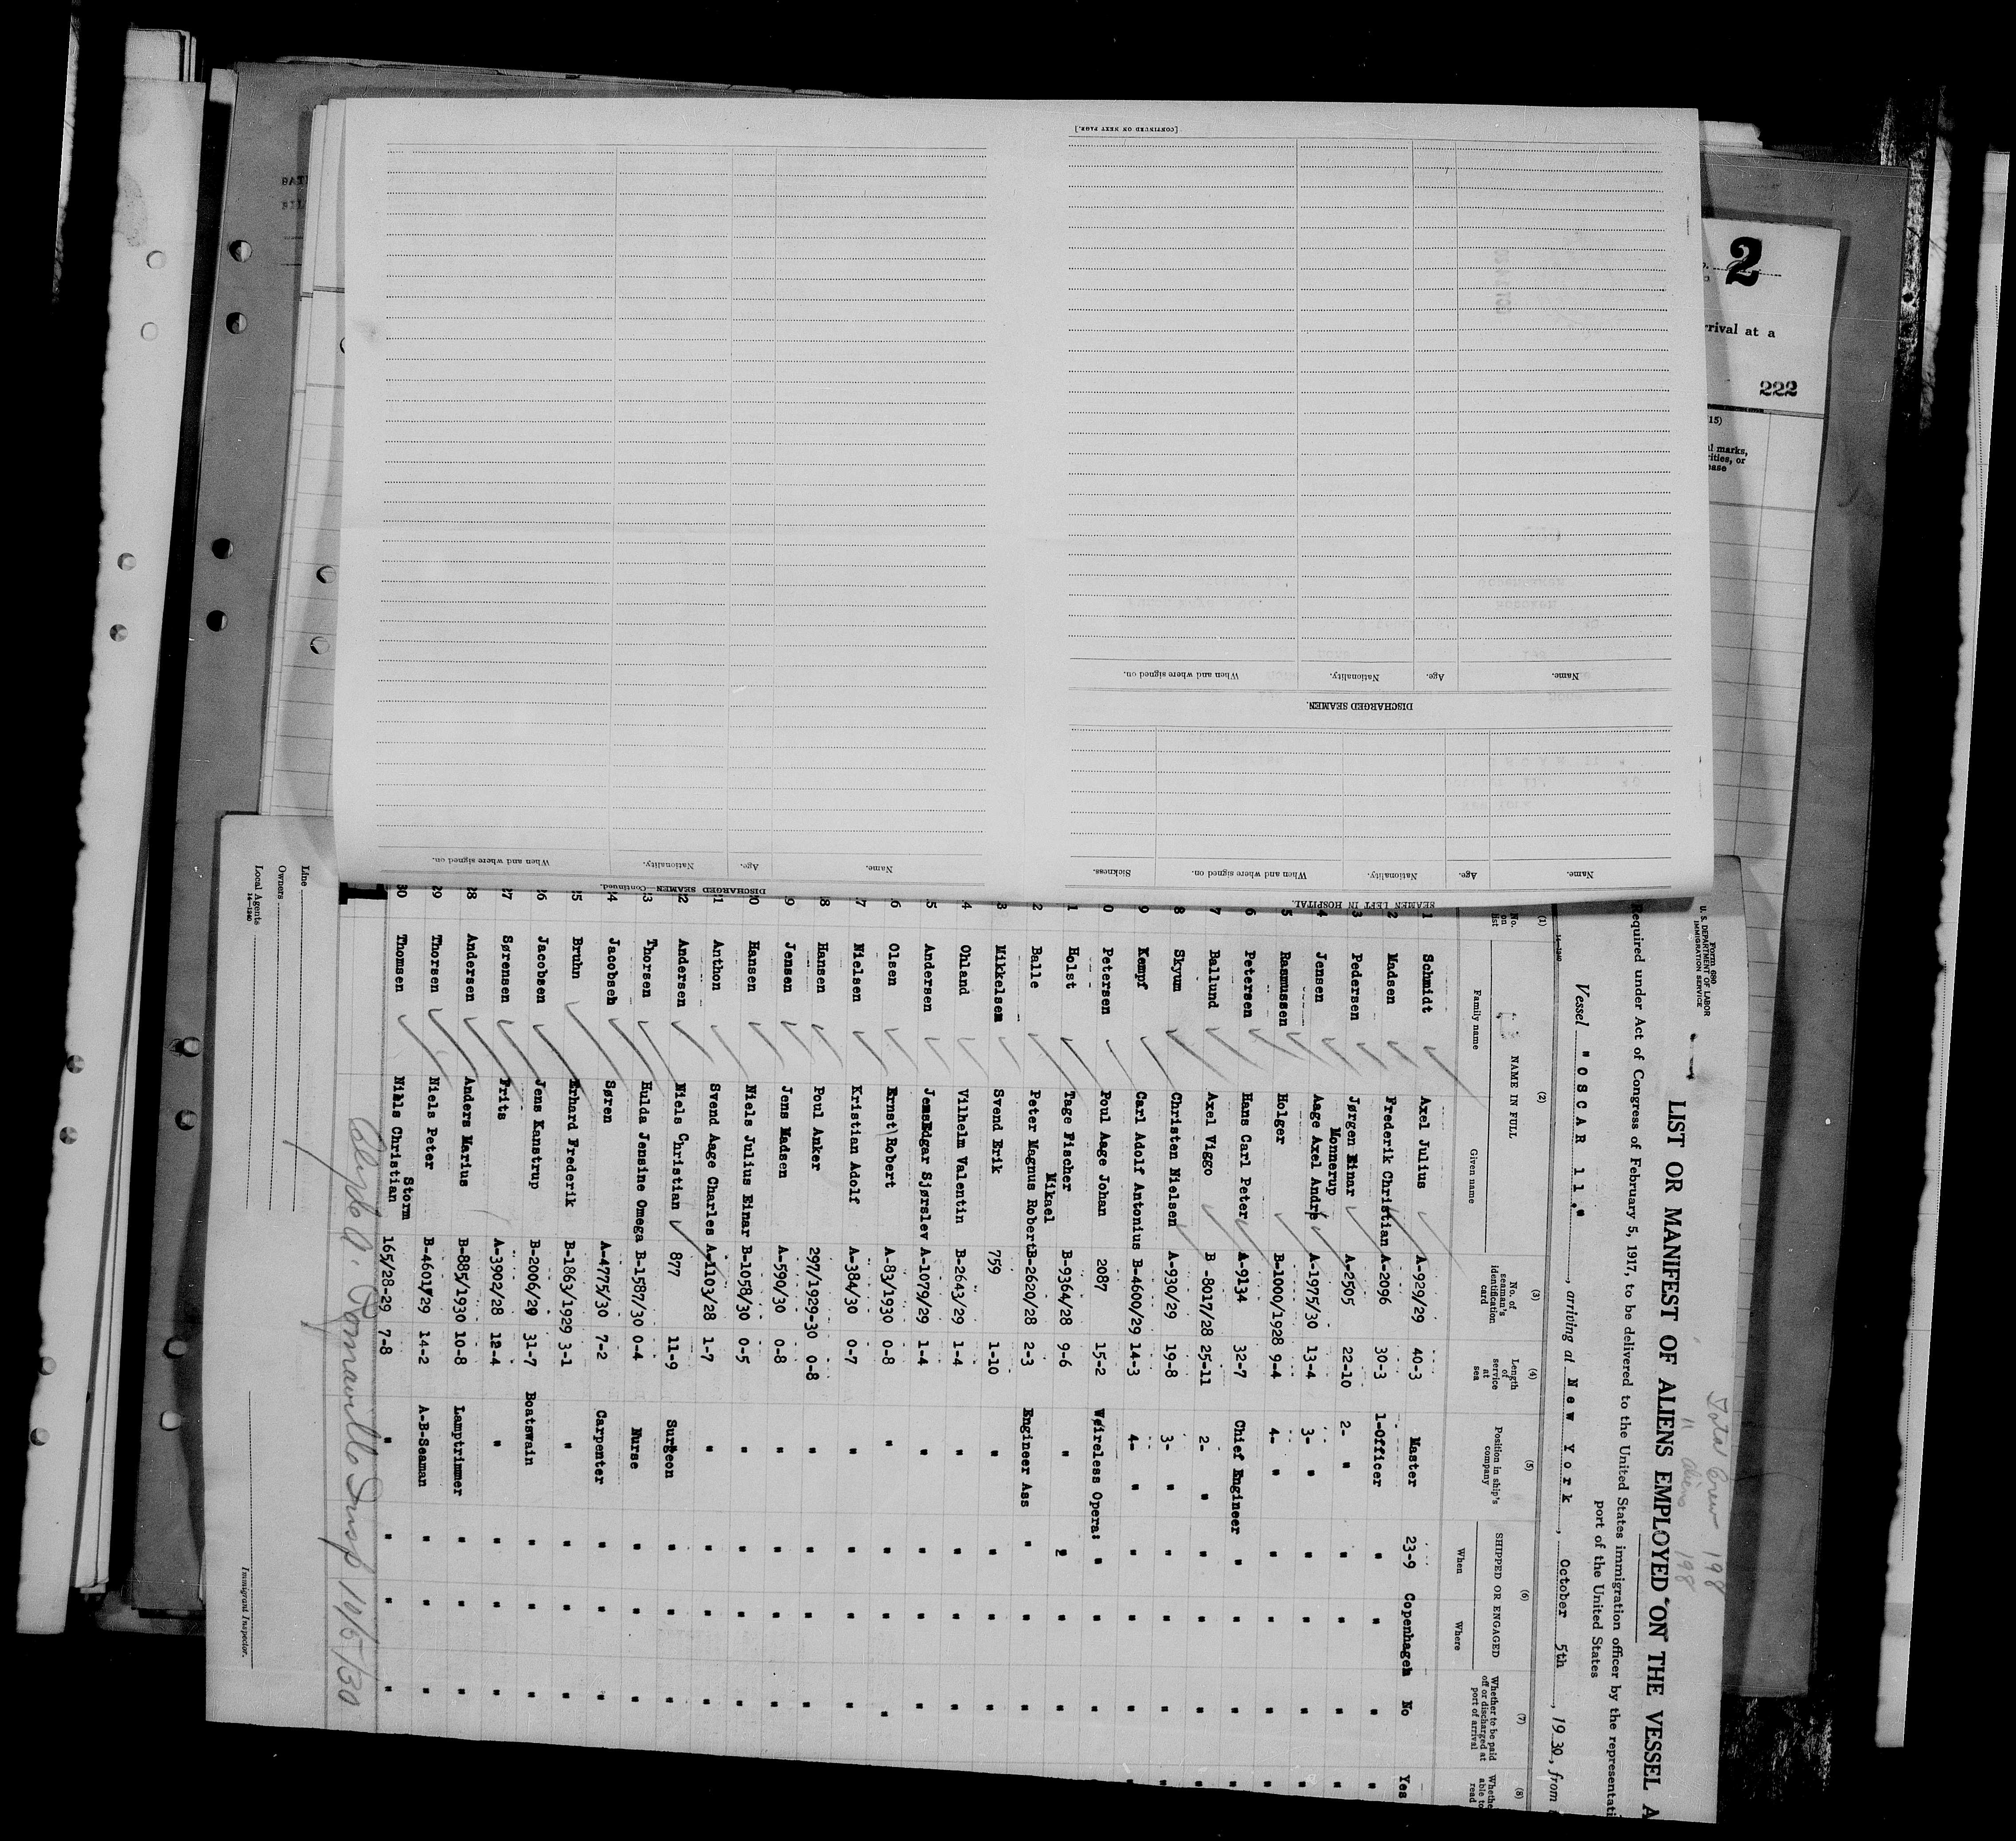 Form 680
U. S. DEPARTMENT OF LABOR
IMMIGRATION SERVICE
Total Crew 198
" aliens 198
LIST OR MANIFEST OF ALIENS EMPLOYED ON THE VESSEL A
Required under Act of Congress of February 5, 1917, to be delivered to the United States immigration officer by the representati
port of the United States
Vessel "OSCAR 11." , arriving at New York , October 5th , 1930, from
14—1240
(1) (2) (3) (4) (5) (6) (7) (8)
No. on list NAME IN FULL No. of seaman's identification card Length of service at sea Position in ship's company SHIPPED OR ENGAGED Whether to be paid off or discharged at port of arrival Whethe able to read
Family name Given name When Where
1 Schmidt Axel Julius A-929/29 40-3 Master 23-9 Copenhagen No Yes
2 Madsen Frederik Christian A-2096 30-3 1-Officer " " " "
3 Pedersen Jørgen Einar A-2505 22-10 2- " " " " "
Monnerup
4 Jensen Aage Axel Andre A-1975/30 13-4 3- " " " " "
5 Rasmussen Holger B-1000/1928 9-4 4- " " " " "
6 Petersen Hans Carl Peter A-9134 32-7 Chief Engineer " " " "
7 Ballund Axel Viggo B-8017/28 25-11 2- " " " " "
8 Skyum Christen Nielsen A-930/29 19-8 3- " " " " "
9 Kempf Carl Adolf Antonius B-4600/29 14-3 4- " " " " "
0 Petersen Poul Aage Johan 2087 15-2 Wireless Opera: " " "
1 Holst Tage Fischer B-9364/28 9-6 " " " "
Mikael
2 Balle Peter Magnus Robert B-2620/28 2-3 Engineer Ass " " "
3 Mikkelsen Svend Erik 759 1-10 " " " "
4 Ohland Vilhelm Valentin B-2643/29 1-4 " " " "
5 Andersen Jens Edgar Sjørslev A-1079/29 1-4 " " " "
6 Olsen Ernst Robert A-83/1930 0-8 " " " "
7 Nielsen Kristian Adolf A-384/30 0-7 " " " "
8 Hansen Poul Anker 297/1929-30 0-8 " " " "
9 Jensen Jens Madsen A-590/30 0-8 " " " "
0 Hansen Niels Julius Einar B-1058/30 0-5 " " " "
1 Anthon Svend Aage Charles A-1103/28 1-7 " " " "
2 Andersen Niels Christian 877 11-9 Surgeon " " "
3 Thorsen Hulda Jensine Omega B-1587/30 0-4 Nurse " " "
4 Jacobsen Søren A-4775/30 7-2 Carpenter " " "
5 Bruhn Erhard Frederik B-1863/1929 3-1 " " " "
26 Jacobsen Jens Kanstrup B-2006/29 31-7 Boatswain " " "
27 Sørensen Frits A-3902/28 12-4 " " " "
28 Andersen Anders Marius B-885/1930 10-8 Lamptrimmer " " "
29 Thorsen Niels Peter B-4601/29 14-2 A-B-Seaman " " "
Storm
30 Thomsen Niels Christian 165/28-29 7-8 " " " "
10/5/30
Line
Owners
Local Agents
14—1240
Immigrant Inspector.
SEAMEN LEFT IN HOSPITAL.
Name. Age. Nationality. When and where signed on. Sickness.
DISCHARGED SEAMEN.
Name. Age. Nationality. When and where signed on.
[CONTINUED ON NEXT PAGE.]
DISCHARGED SEAMEN—Continued.
Name. Age. Nationality. When and where signed on.
2
rrival at a
222
15)
al marks,
rities, or
ease